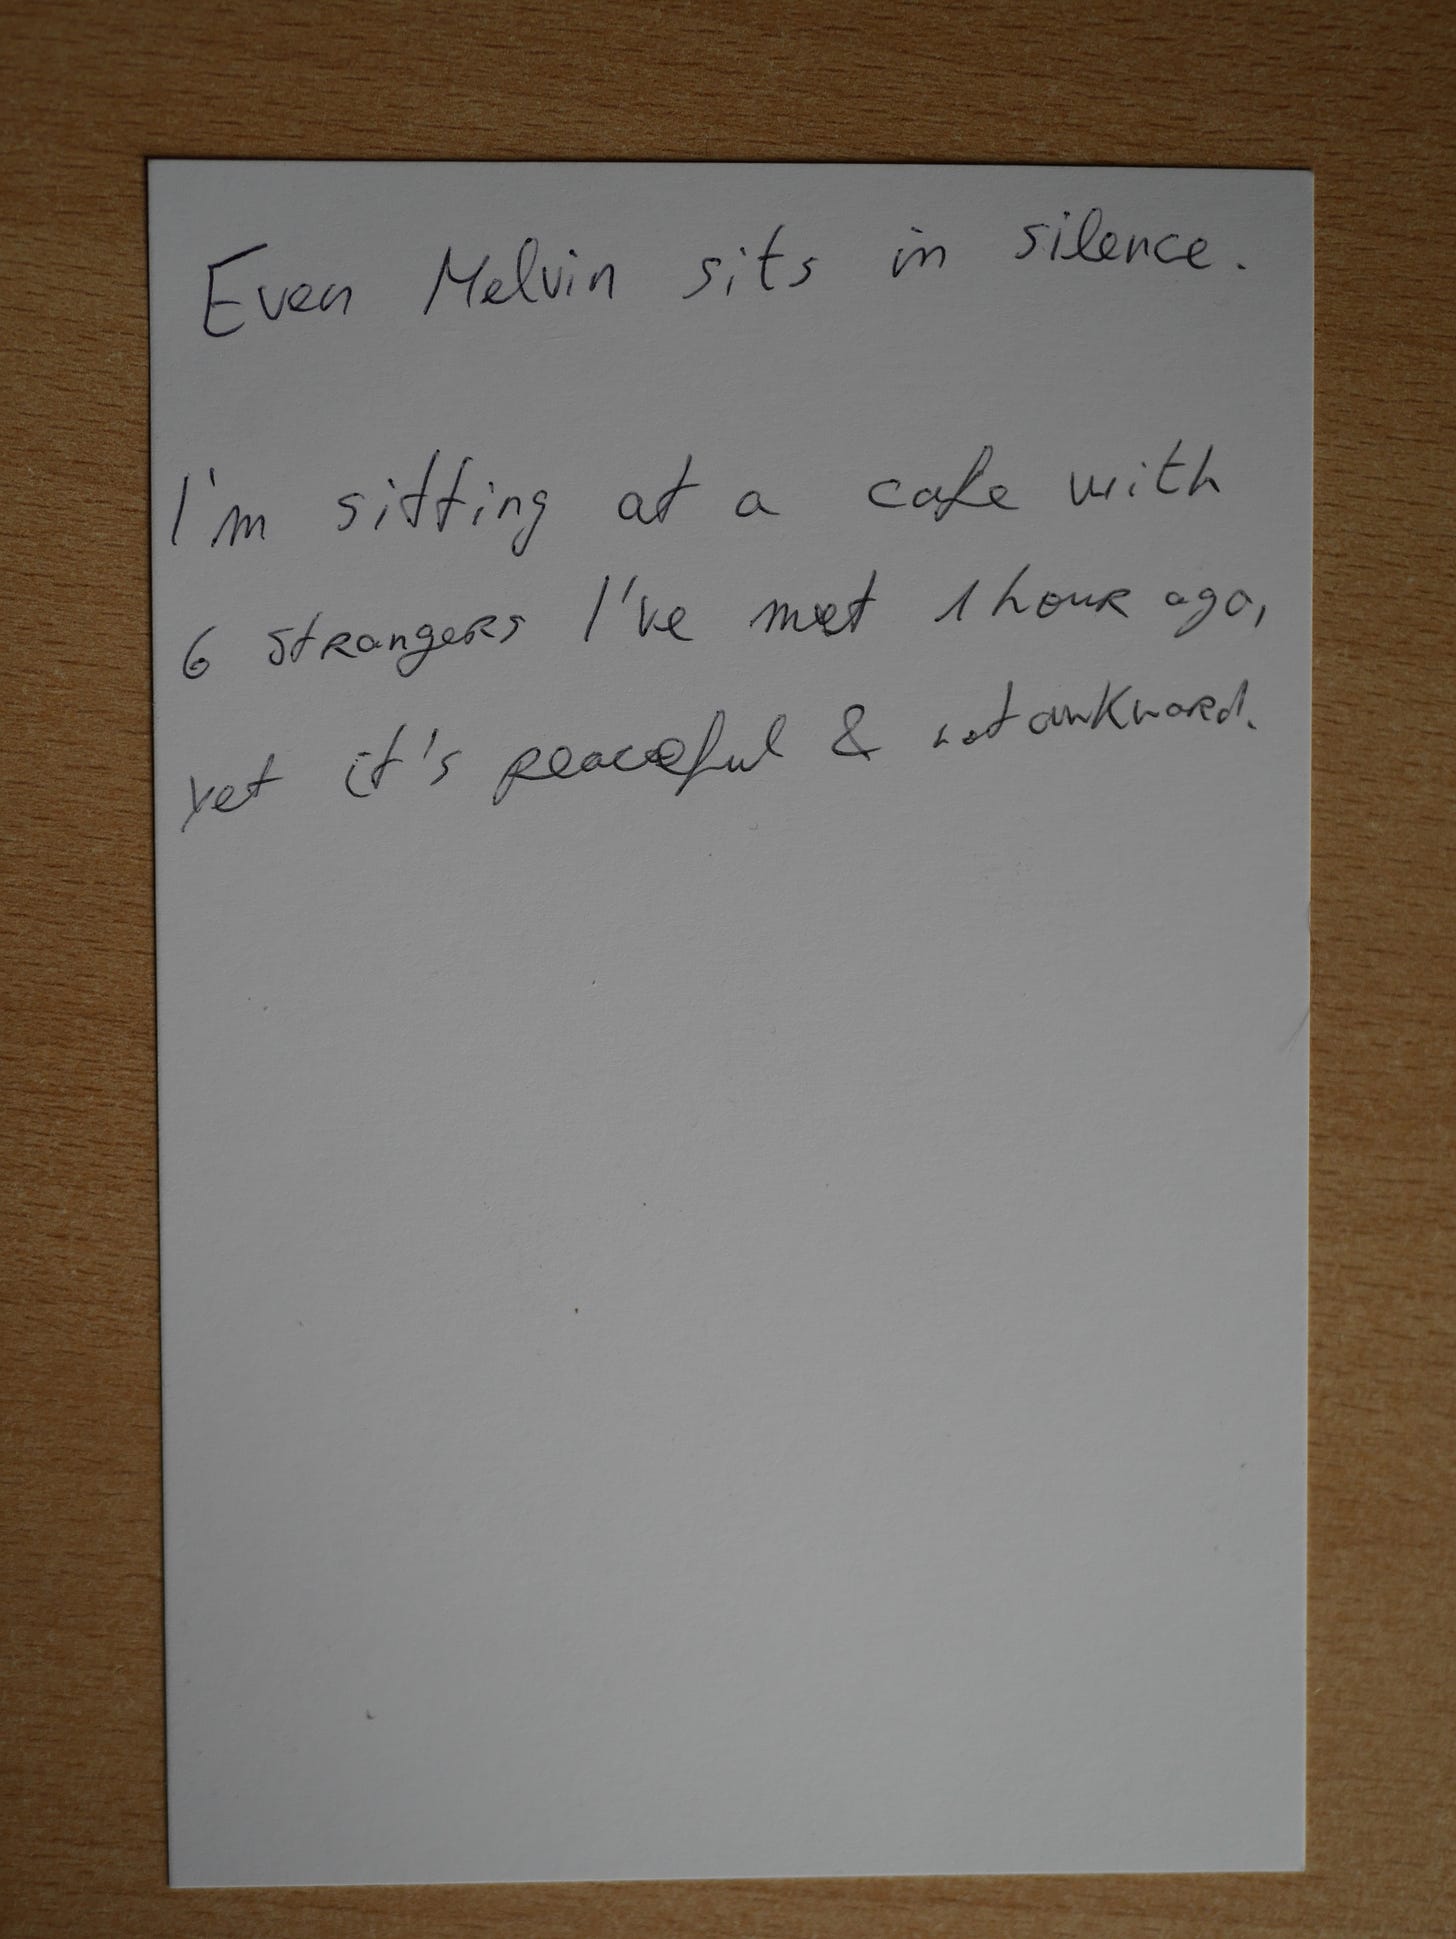 Even Melvin sits in silence.
I'm sitting at a cafe with
6 strangers I've met 1 hour ago,
yet it's peaceful & not awkward.